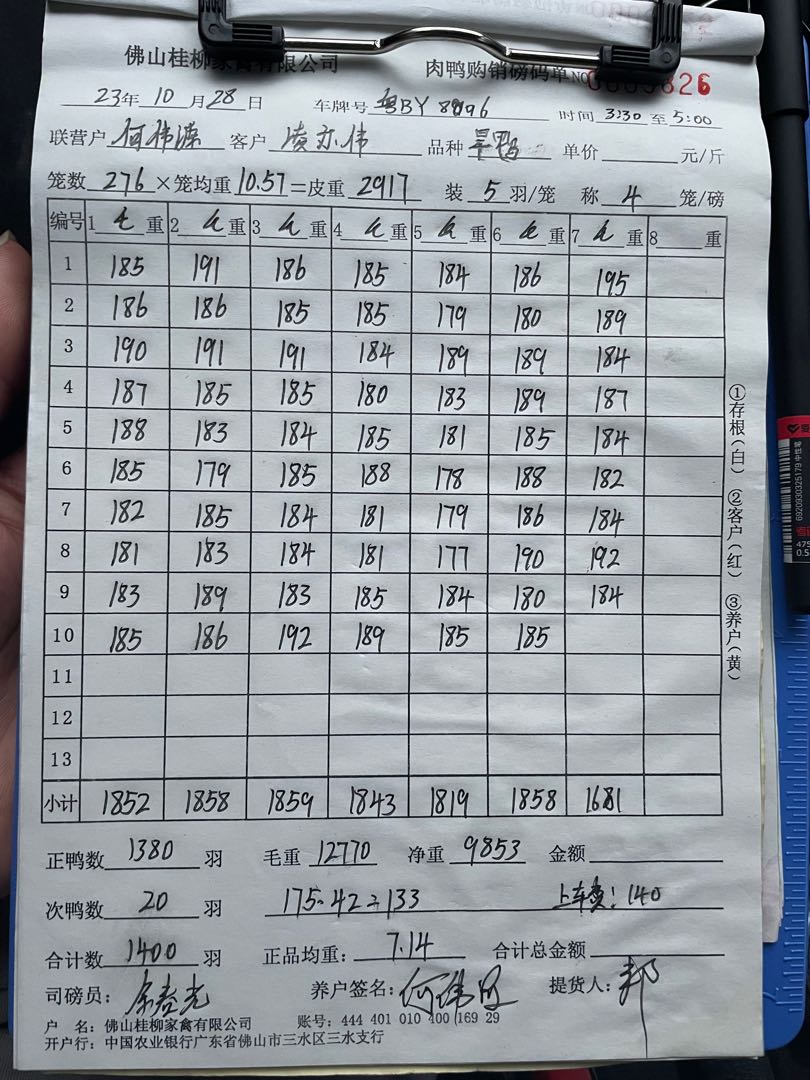 佛山桂柳家禽有限公司 肉鸭购销磅码单 NO
23年 10 月 28 日 车牌号 粤BY 8896 时间 3:30 至 5:00
联营户 何伟 客户 凌亦伟 品种 旱鸭 单价 元/斤
笼数 276 ×笼均重 10.57 =皮重 2917 装 5 羽/笼 称 4 笼/磅
编号 1 毛 重 2 毛 重 3 毛 重 4 毛 重 5 毛 重 6 毛 重 7 毛 重 8 重
1 185 191 186 185 184 186 195
2 186 186 185 185 179 180 189
3 190 191 191 184 189 189 184
4 187 185 185 180 183 189 187
5 188 183 184 185 181 185 184
6 185 179 185 188 178 188 182
7 182 185 184 181 179 186 184
8 181 183 184 181 177 190 192
9 183 189 183 185 184 180 184
10 185 186 192 189 185 185
11
12
13
小计 1852 1858 1859 1843 1819 1858 1681
正鸭数 1380 羽 毛重 12770 净重 9853 金额
次鸭数 20 羽 175-42=133 上车费：140
合计数 1400 羽 正品均重： 7.14 合计总金额
司磅员： 养户签名： 何伟 提货人： 邦
户 名：佛山桂柳家禽有限公司 账号：444 401 010 400 169 29
开户行：中国农业银行广东省佛山市三水区三水支行
①存根(白) ②客户(红) ③养户(黄)
6920930325179 中性笔